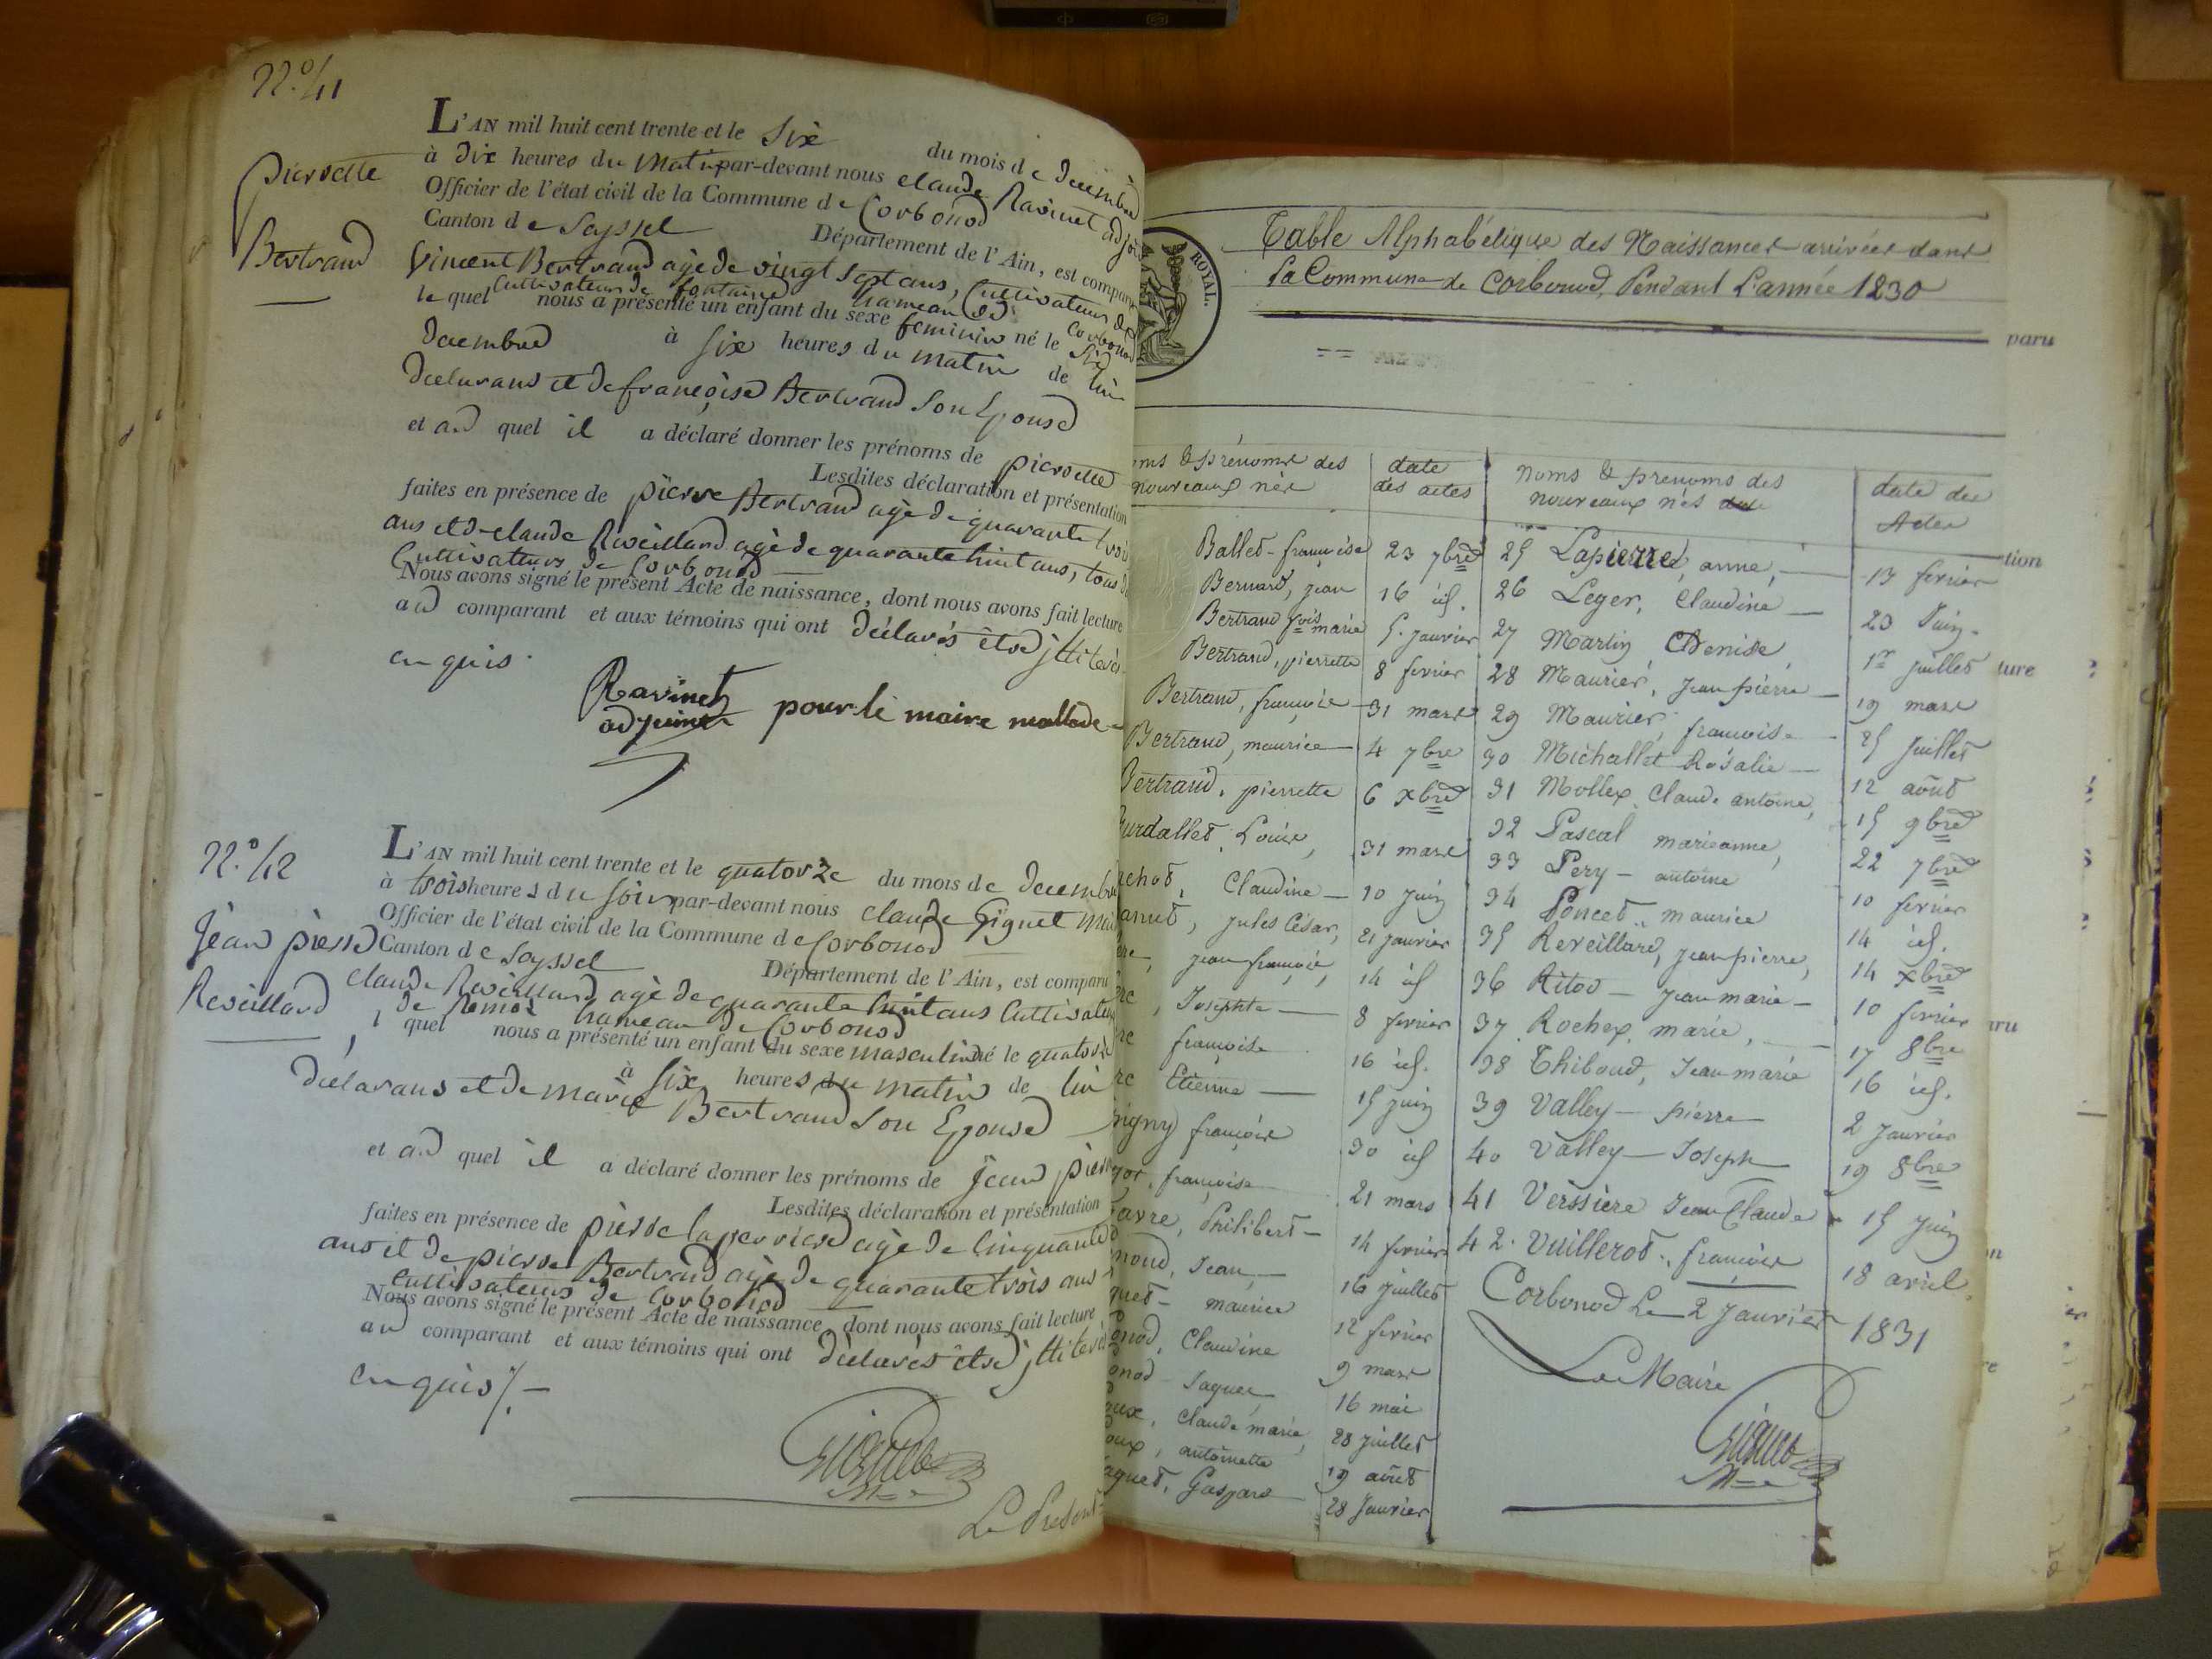 N.° 41
L'AN mil huit cent trente et le Six du mois de decembre
à dix heures du Matin par-devant nous claude Ravinet adjoi
Officier de l'état civil de la Commune de Corbonod
Canton de Seyssel Département de l'Ain, est comparu
pierrette
Bertrand
Vincent Bertrand agé de vingt Sept ans, Cultivateur de
Cultivateur de fontaine hameau de Corbonod
le quel nous a présenté un enfant du sexe feminin né le Six
decembre à Six heures du matin de lui
declarans et de françoise Bertrand Son Epouse
et au quel il a déclaré donner les prénoms de pierrette
Lesdites déclaration et présentation
faites en présence de pierre Bertrand agé de quarante trois
ans et de claude Reveillard agé de quarante huit ans, tous d
Cultivateurs de Corbonod
Nous avons signé le présent Acte de naissance, dont nous avons fait lecture
au comparant et aux témoins qui ont déclarés être jlliterés
enquis.
Ravinet
adjoint pour le maire mallade
N.° 42
L'AN mil huit cent trente et le quatorze du mois de decembre
à trois heures du Soir par-devant nous claude Gignet Mai
Officier de l'état civil de la Commune de Corbonod
Canton de Seyssel
Jean pierre
Reveillard
Département de l'Ain, est comparu
claude Reveillard agé de quarante huit ans Cultivateur
de hameau de Corbonod
l quel nous a présenté un enfant du sexe masculin né le quatorze
à Six heures du matin de lui
declarans et de marie Bertrand Son Epouse
et au quel il a déclaré donner les prénoms de Jean pierre
Lesdites déclaration et présentation
faites en présence de pierre laperriere agé de Cinquante
ans et de pierre Bertrand agé de quarante trois ans
cultivateurs de Corbonod
Nous avons signé le présent Acte de naissance dont nous avons fait lecture
au comparant et aux témoins qui ont déclarés être jlliterés
enquis
Gignet
Le Present
ROYAL.
Table Alphabétique des Naissances arrivées dans
La Commune de Corbonod, Pendant L'année 1830
oms & prénoms des nouveaux nés
date des actes
noms & prenoms des nouveaux nés
date des Actes
Ballet - françoise 23 7bre 25 Lapierre, anne, 13 fevrier
Bernard, jean 16 id. 26 Leger, Claudine 23 Juin
Bertrand fois marie 5 janvier 27 Martin Denise 1er juillet
Bertrand, pierrette 8 fevrier 28 Maurier, Jean pierre 19 mars
Bertrand, françoise 31 mars 29 Maurier françoise 25 Juillet
Bertrand, maurice 4 7bre 30 Michallet Rosalie 12 août
Bertrand, pierrette 6 xbre 31 Mollex, Claude antoine, 15 9bre
urdallet, Louise, 31 mars 32 Pascal marieanne, 22 7bre
chot, Claudine 10 juin 33 Pery - antoine 10 fevrier
anet, jules César, 21 janvier 34 Poncet, maurice 14 id.
ere, jean françois, 14 id 35 Reveillard, jean pierre, 14 xbre
re, Josephte 8 fevrier 36 Ritod - jean marie - 10 fevrier
re françoise 16 id. 37 Rochex, marie, 17 8bre
re Etienne 15 juin 38 Thiboud, Jean marie 16 id.
igny françoise 30 id 39 Valley - pierre 2 janvier
jor, françoise 21 mars 40 Valley - Joseph 19 8bre
avre, Philibert - 14 fevrier 41 Verssiere Jean Claude 15 juin
noud, Jean, 16 juillet 42. Vuillerot, françois 18 avril
quet - maurice 12 fevrier
onod, Claudine 9 mars
onod Jaques 16 mai
oux, Claude marie, 28 juillet
oux, antoinette 19 août
aquet, Gaspard 28 Janvier
Corbonod Le 2 janvier 1831
Le Maire
Gignet
paru
tion
ture
aru